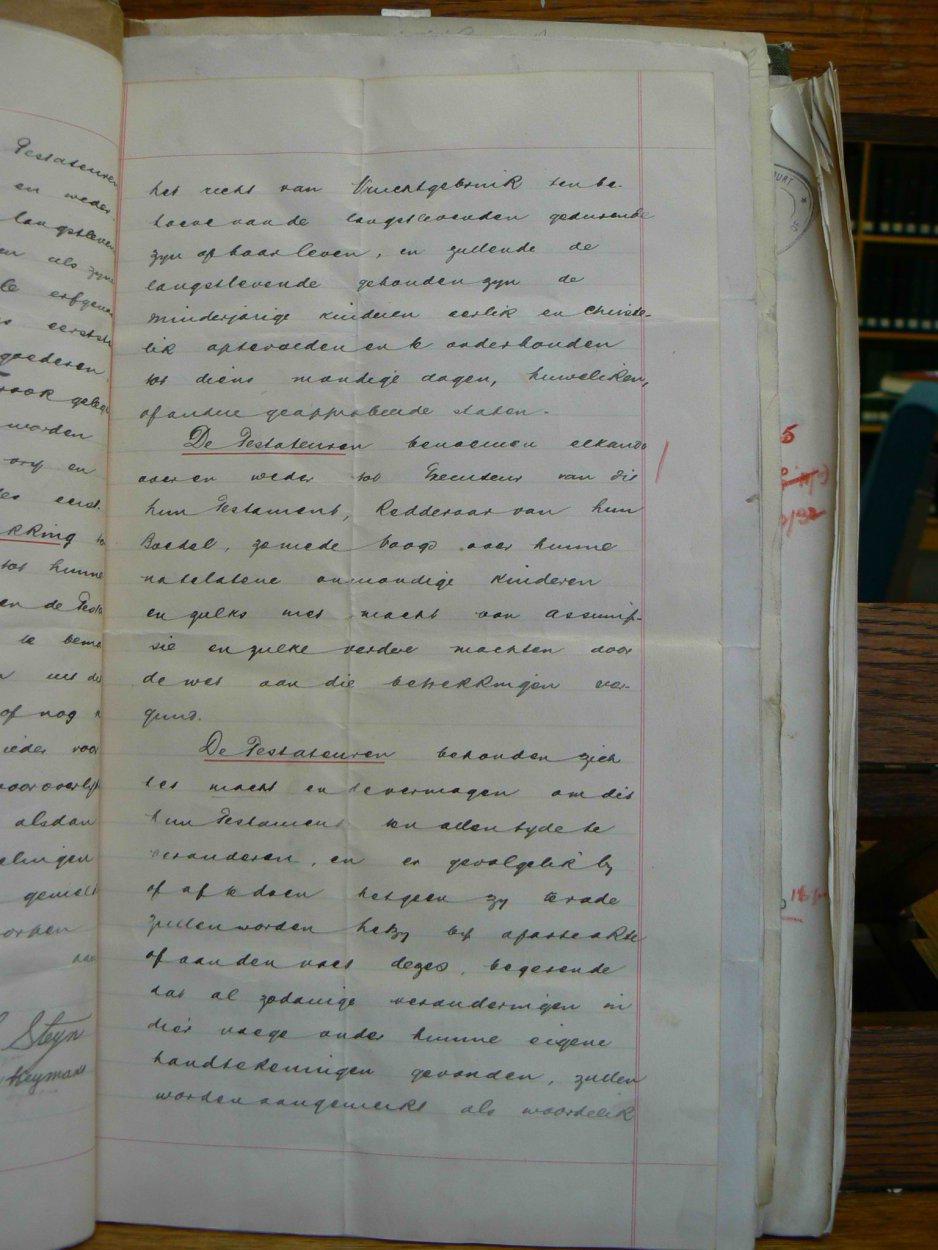 Testateuren
en weder
langstleven
en als zyne
erfgena
eerstst
goederen
ook geleg
worden
en
eerst
kking
tot hunne
en de Testa
te beno
uit de
of nog
ieder voor
vooroverly
alsdan
elingen
gemel
Steyn
Heymans
het recht van Vruchtgebruik ten be-
hoeve van de langstlevenden gedurende
zyn of haar leven, en zullende de
langstlevende gehouden zyn de
minderjarige kinderen eerlik en christe-
lik optevoeden en te onderhouden
tot diens mondige dagen, huweliken,
of andere geapprobeerde staten.
De Testateuren benoemen elkander
over en weder tot Executeur van dit
hun Testament, Redderaar van hun
Boedel, zomede voogd over hunne
natelatene onmondige kinderen
en zulks met macht van assump-
sie en zulke verdere machten door
de wet aan die betrekkingen ver-
gund.
De Testateuren behouden zich
het macht en tevermogen om dit
hun Testament ten allen tyde te
veranderen, en er gevolgelik by
of af te doen hetgeen zy te rade
zullen worden hetzy by aparte akte
of aan den voet dezes, begerende
dat al zodanige veranderingen in
dier voege onder hunne eigene
handtekeningen gevonden, zullen
worden aangemerkt als woordelik